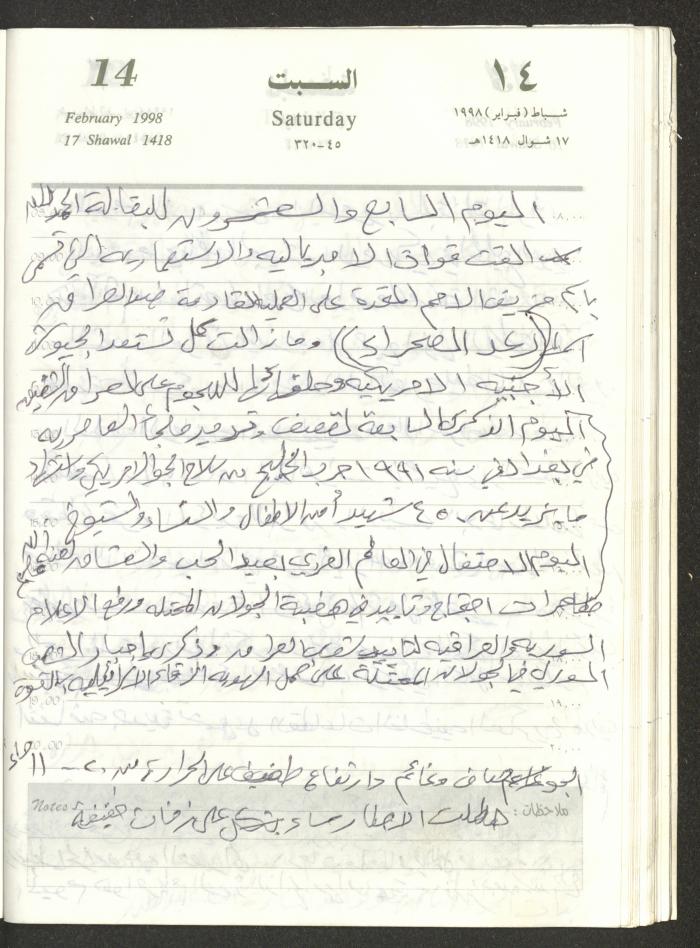 14 السبت ١٤
February 1998 Saturday شباط (فبراير) ١٩٩٨
17 Shawal 1418 ٤٥-٣٢٠ ١٧ شوال ١٤١٨هـ
اليوم السابع والعشرون للبقالة الحمد لله
القت قوات الامبريالية والاستعمارية التي تسمى
باسم حزيف الامم المتحدة على العملية القادمة ضد العراق
(رعد الصحراء) وما زالت تستعد الجيوش
الأجنبية الامريكية وحلفائها للهجوم على العراق الشقيق
اليوم الذكرى السابعة لقصف وتدمير ملجأ العامرية
في بغداد في سنة ١٩٩١ حرب الخليج من سلاح الجو الامريكي واستشهاد
ما يزيد عن ٤٥٠ شهيد أمن الاطفال والنساء والشيوخ
اليوم الاحتفال في العالم الغربي بعيد الحب والعشاق لعنة الله
مظاهرات احتجاج وتأييد في هضبة الجولان المحتله ورفع الاعلام
السورية والعراقية لتأييد شعب العراق وذكرى إجبار
السوري في الجولان المحتلة على حمل الهوية الاسرائيلية بالقوة
١٩,٠٠
٢٠,٠٠
الجو صاف وغائم وارتفاع طفيف على الحرارة من ٢٠ - ١١ مساء
Notes ملاحظات :
هطلت الامطار مساء بشكل على زخات خفيفة